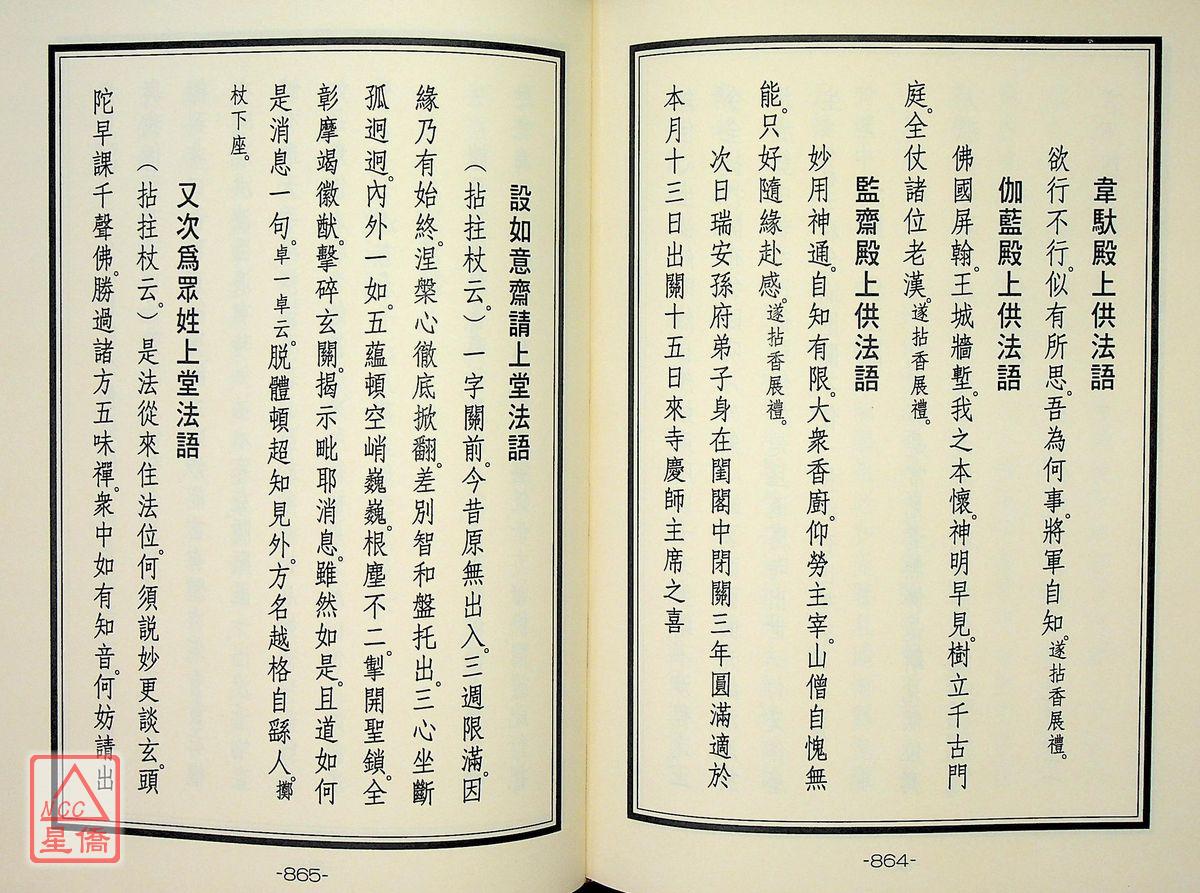 韋馱殿上供法語
欲行不行。似有所思。吾為何事。將軍自知。遂拈香展禮。
伽藍殿上供法語
佛國屏翰。王城牆塹。我之本懷。神明早見。樹立千古門
庭。全仗諸位老漢。遂拈香展禮。
監齋殿上供法語
妙用神通。自知有限。大衆香廚。仰勞主宰。山僧自愧無
能。只好隨緣赴感。遂拈香展禮。
次日瑞安孫府弟子身在閨閣中閉關三年圓滿適於
本月十三日出關十五日來寺慶師主席之喜
-864-
設如意齋請上堂法語
（拈拄杖云。）一字關前。今昔原無出入。三週限滿。因
緣乃有始終。涅槃心徹底掀翻。差別智和盤托出。三心坐斷
孤迥迥。內外一如。五蘊頓空峭巍巍。根塵不二。掣開聖鎖。全
彰摩竭徽猷。擊碎玄關。揭示毗耶消息。雖然如是。且道如何
是消息一句。卓一卓云。脫體頓超知見外。方名越格自繇人。擲
杖下座。
又次爲眾姓上堂法語
（拈拄杖云。）是法從來住法位。何須説妙更談玄。頭
陀早課千聲佛。勝過諸方五味禪。衆中如有知音。何妨請出
-865-
NCC
星僑